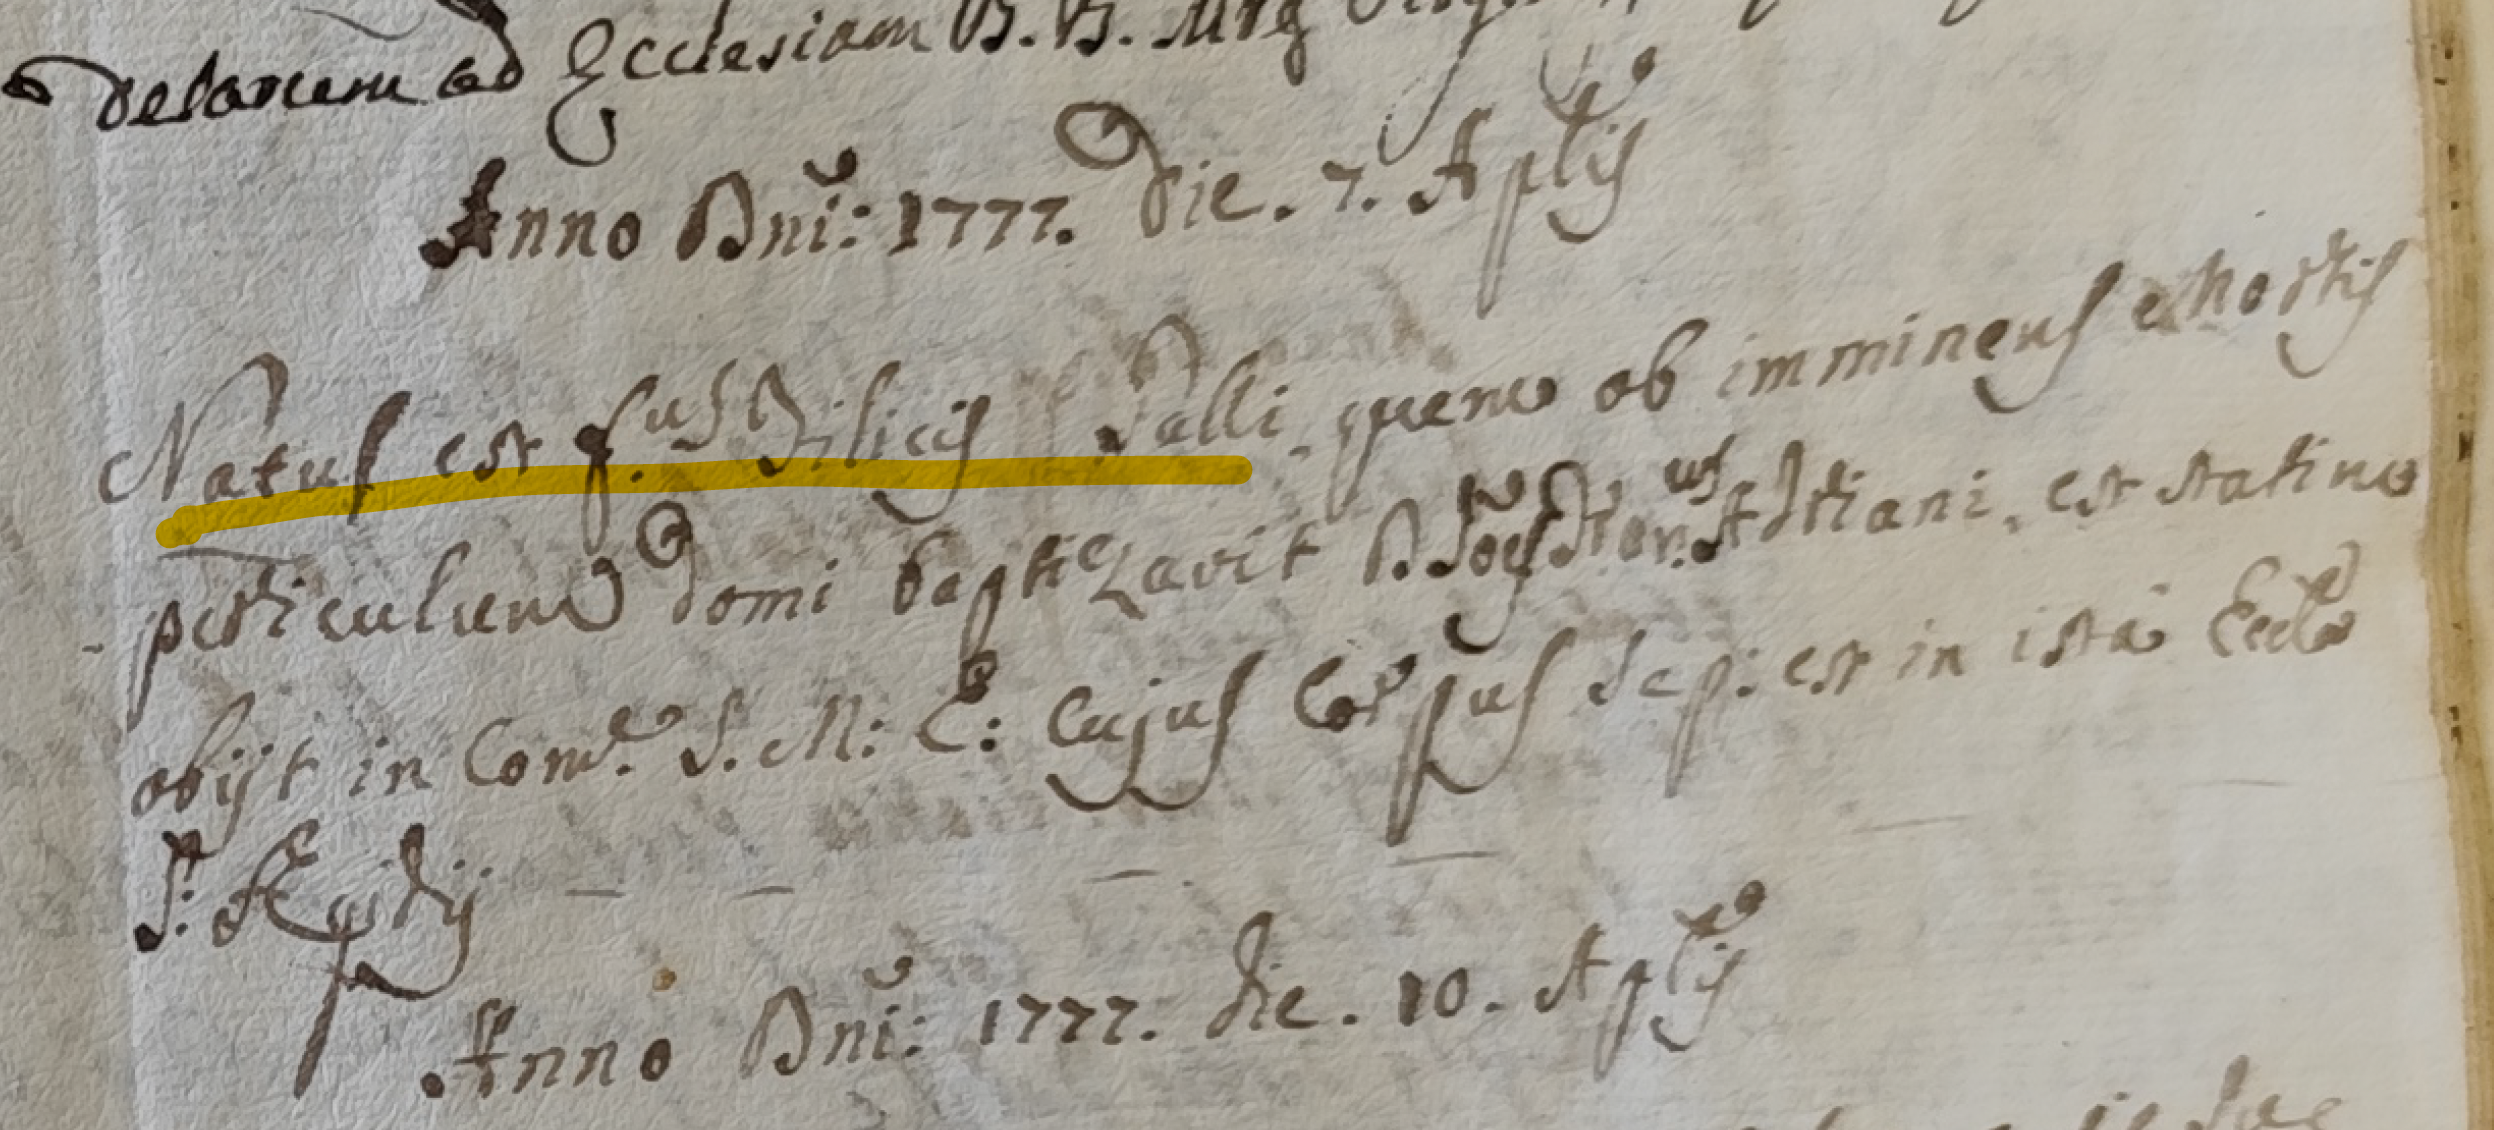 delarum ad Ecclesiam B. B. Mrg
Anno Dni: 1777. die. 7. Aplis
Natus est f.us Bilicis Dalli, quem ob imminens mortis
periculum domi baptizavit D. Joes Adriani, et statim
obijt in Com.e S. M: E: cujus Corpus Sep: est in ista Eccla
S: Aegidij
Anno Dni: 1777. die. 10. Aplis